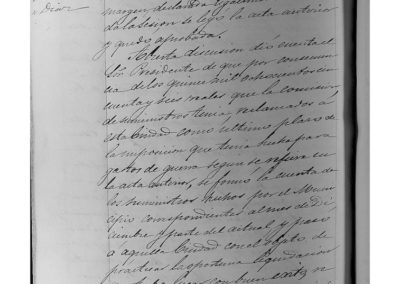 Diaz
margen, declarada legalmente
la sesion se leyó la acta anterior
y quedó aprobada.
Abierta discusion dió cuenta el
Sr. Presidente de que por consecuen
cia de los quince mil ochocientos cin
cuenta y seis reales que la comision
de suministros tenia reclamados á
esta Ciudad como ultimo plazo de
la imposicion que tenia hecha para
gastos de guerra segun se refiere en
la acta anterior, se formó la cuenta de
los suministros hechos por el Muni
cipio correspondientes al mes de Di
ciembre y parte del actual y pasó
á aquella Ciudad con el objeto de
practicar la oportuna liquidacion
con buen exito